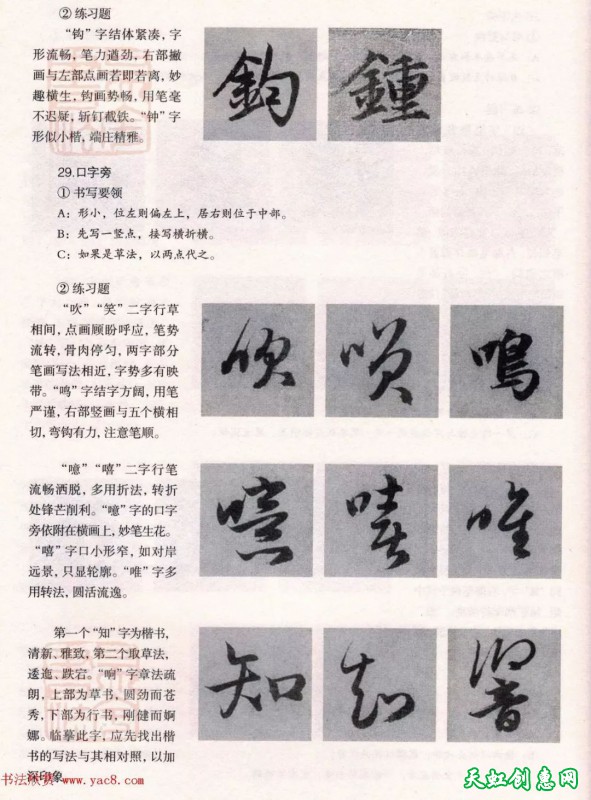 ② 练习题
“钩”字结体紧凑，字
形流畅，笔力遒劲，右部撇
画与左部点画若即若离，妙
趣横生，钩画势畅，用笔毫
不迟疑，斩钉截铁。“钟”字
形似小楷，端庄精雅。
鈎 鍾
29.口字旁
① 书写要领
A：形小，位左则偏左上，居右则位于中部。
B：先写一竖点，接写横折横。
C：如果是草法，以两点代之。
② 练习题
“吹”“笑”二字行草
相间，点画顾盼呼应，笔势
流转，骨肉停匀，两字部分
笔画写法相近，字势多有映
带。“鸣”字结字方阔，用笔
严谨，右部竖画与五个横相
切，弯钩有力，注意笔顺。
吹 鳴
“噫”“嘻”二字行笔
流畅洒脱，多用折法，转折
处锋芒削利。“噫”字的口字
旁依附在横画上，妙笔生花。
“嘻”字口小形窄，如对岸
远景，只显轮廓。“唯”字多
用转法，圆活流逸。
噫 嘻 唯
第一个“知”字为楷书，
清新、雅致，第二个取草法，
逶迤、跌宕。“响”字章法疏
朗，上部为草书，圆劲而苍
秀，下部为行书，刚健而婀
娜。临摹此字，应先找出楷
书的写法与其相对照，以加
深印象
知 知 響
书法欣赏 www.yac8.com
天虹创惠网